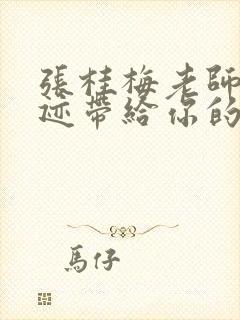 張桂梅老師
迹帶給你的
馬仔